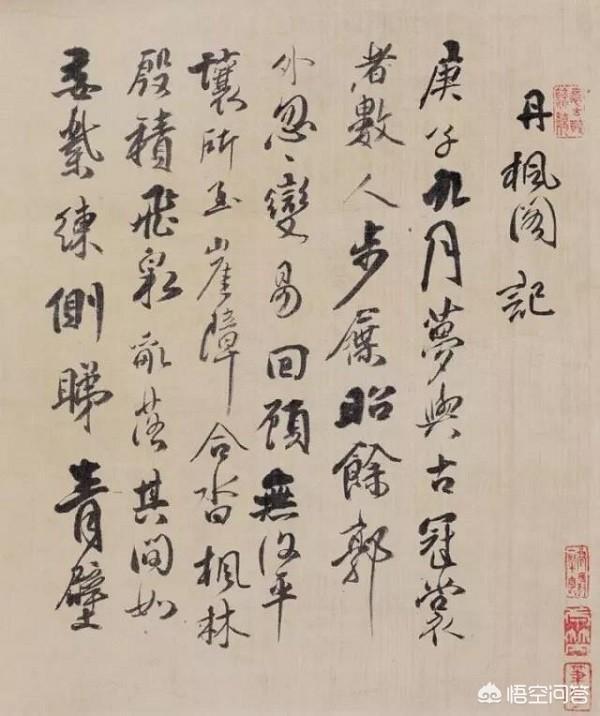 丹楓阁記
庚子九月夢與古冠裳
者數人步屧昭餘郭
外忽〻變易回顧無復平
壤所至崖障合沓楓林
殷積飛泉亂落其間如
委紫練側睇青壁
悟空问答